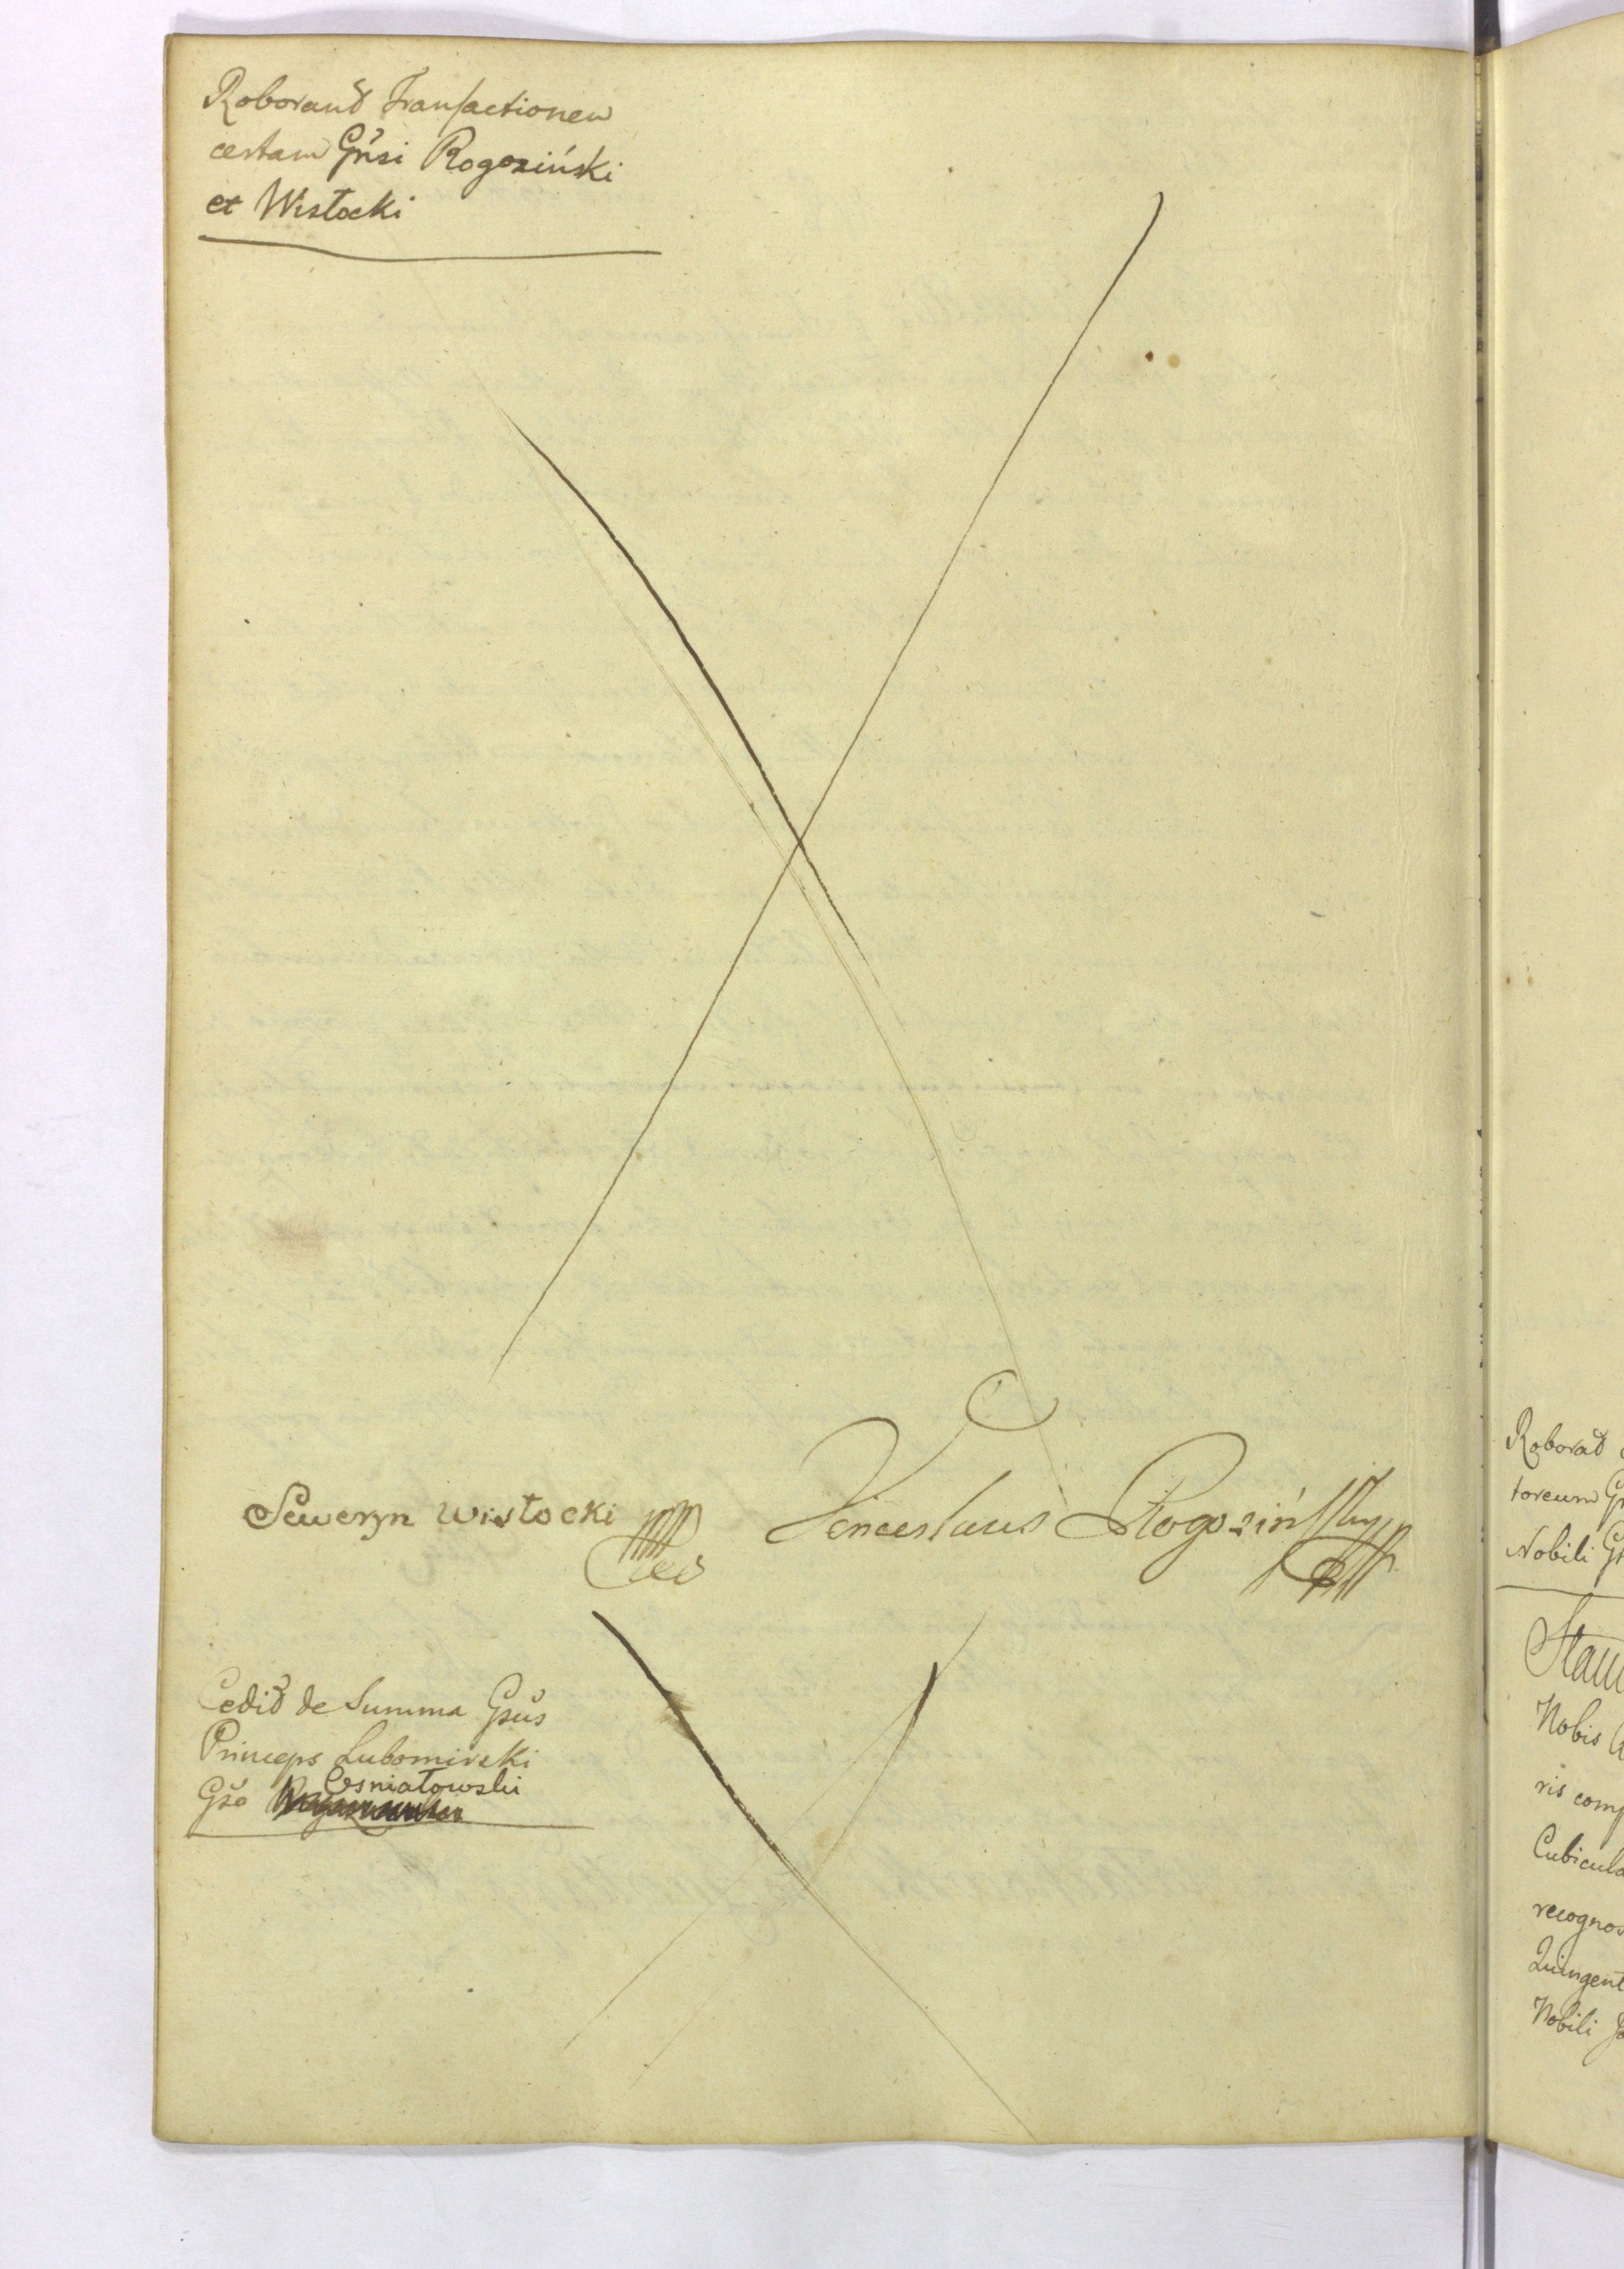 Roborand Transactionem
certam Gnsi Rogoziński
et Wisłocki
Seweryn Wisłocki
Venceslaus Rogoziński
Cedid de Summa Gsus
Princeps Lubomirski
Osniałowski
Gso
Roborad
toreum
Nobili
Nobis
ris comp
Cubicula
recognos
Quingent
Nobili